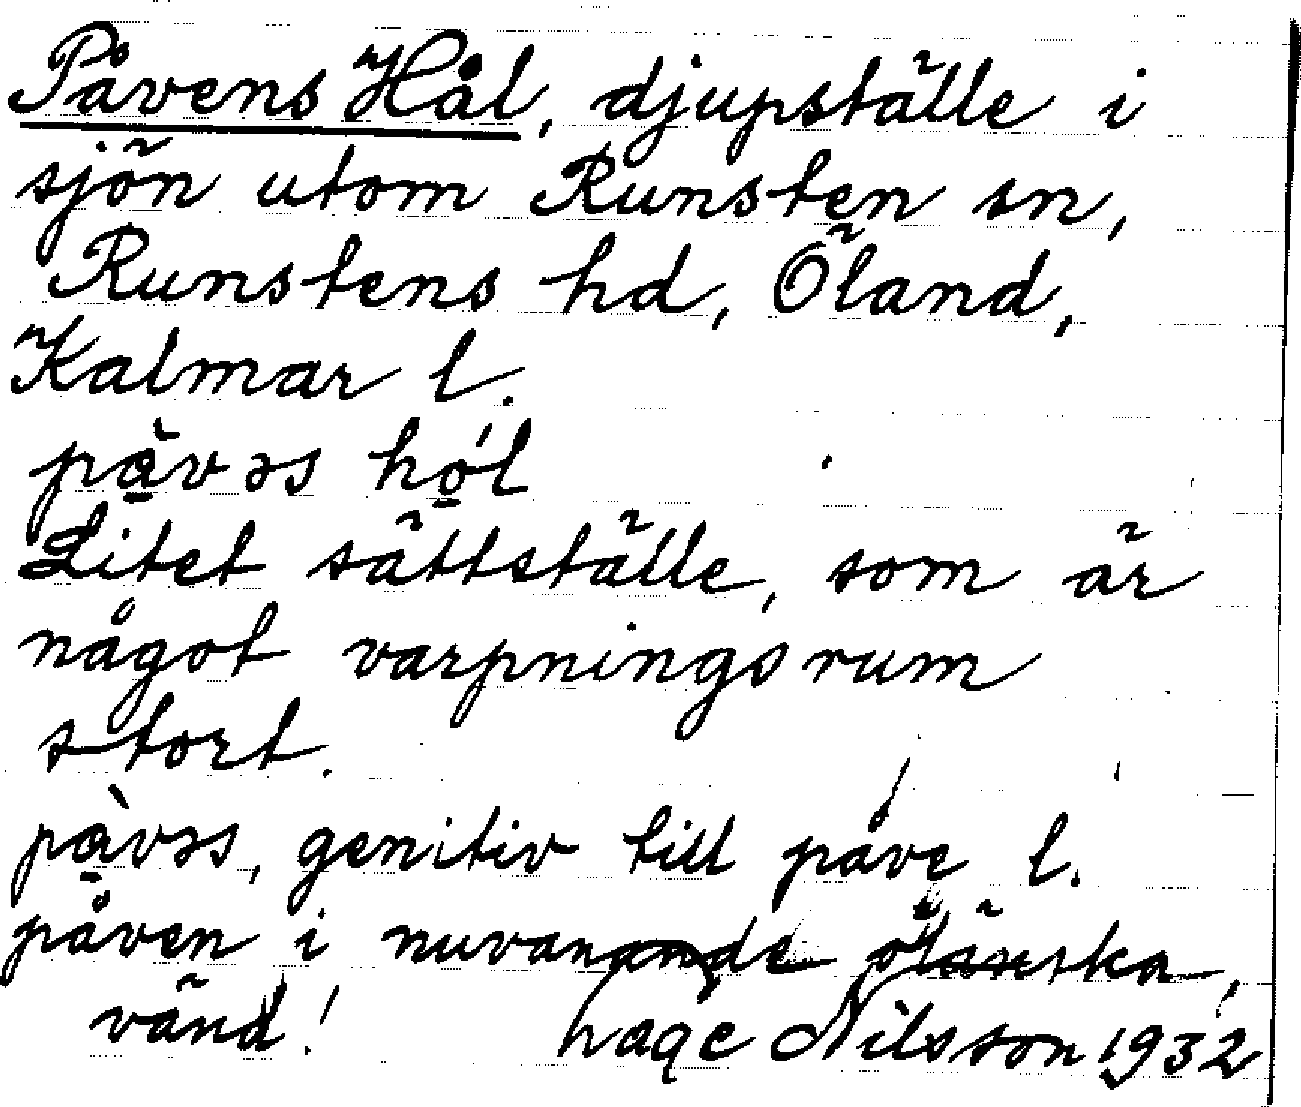 Påvens Hål, djupställe i
sjön utom Runsten sn,
Runstens hd, Öland,
Kalmar l.
pàvəs hól
Litet sättställe, som är
något varpningsrum
stort.
pàvəs, genitiv till påve l.
påven i nuvarande öländska,
vänd! Nilsson 1932